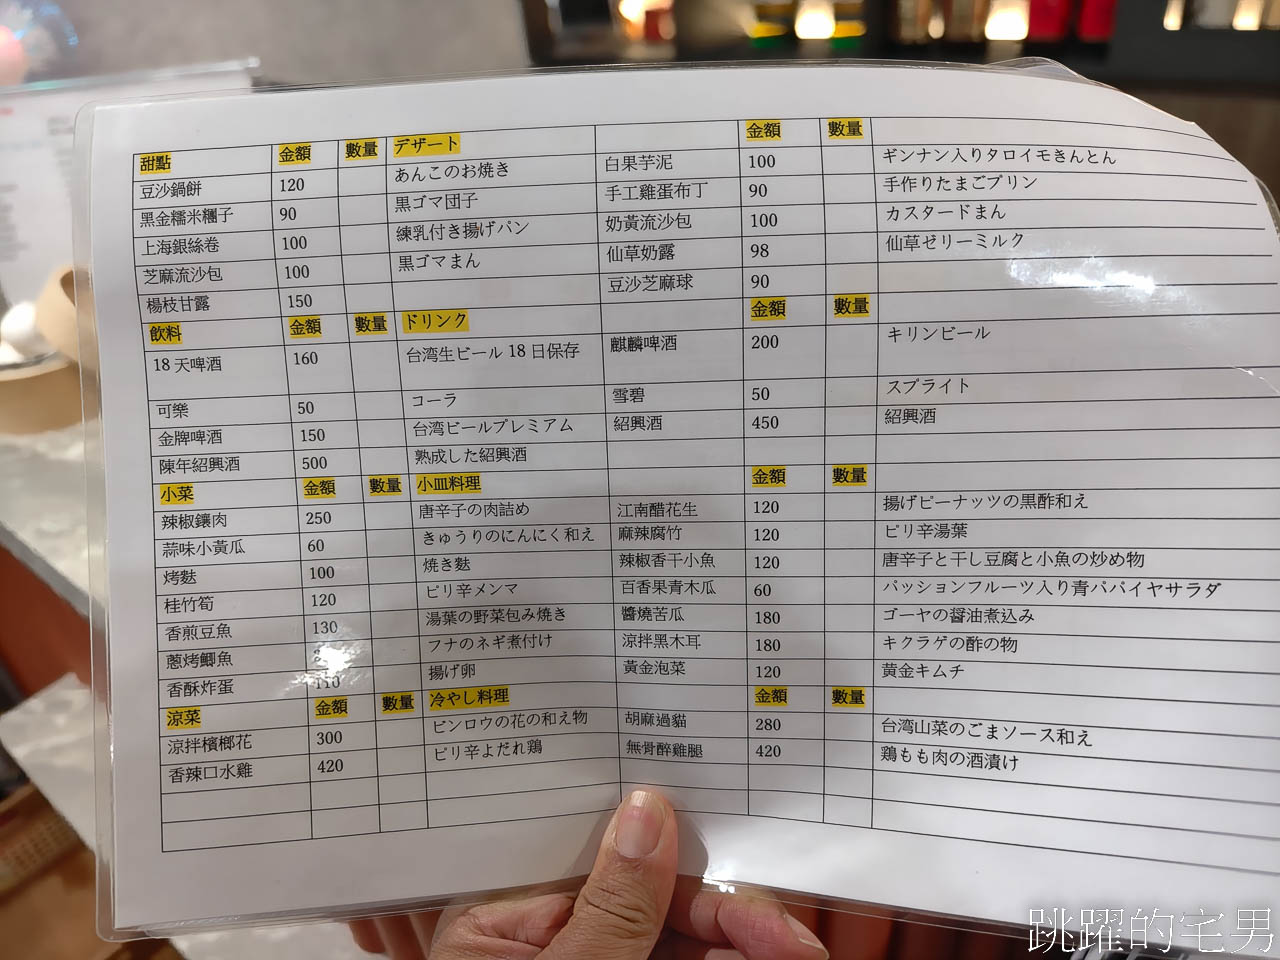 甜點 金額 數量 デザート 金額 數量
豆沙鍋餅 120 あんこのお焼き 白果芋泥 100 ギンナン入りタロイモきんとん
黑金糯米糰子 90 黒ゴマ団子 手工雞蛋布丁 90 手作りたまごプリン
上海銀絲卷 100 練乳付き揚げパン 奶黃流沙包 100 カスタードまん
芝麻流沙包 100 黒ゴマまん 仙草奶露 98 仙草ゼリーミルク
楊枝甘露 150 豆沙芝麻球 90
飲料 金額 數量 ドリンク 金額 數量
18 天啤酒 160 台湾生ビール 18 日保存 麒麟啤酒 200 キリンビール
可樂 50 コーラ 雪碧 50 スプライト
金牌啤酒 150 台湾ビールプレミアム 紹興酒 450 紹興酒
陳年紹興酒 500 熟成した紹興酒
小菜 金額 數量 小皿料理 金額 數量
辣椒鑲肉 250 唐辛子の肉詰め 江南醋花生 120 揚げピーナッツの黒酢和え
蒜味小黃瓜 60 きゅうりのにんにく和え 麻辣腐竹 120 ピリ辛湯葉
烤麩 100 焼き麩 辣椒香干小魚 120 唐辛子と干し豆腐と小魚の炒め物
桂竹筍 120 ピリ辛メンマ 百香果青木瓜 60 パッションフルーツ入り青パパイヤサラダ
香煎豆魚 130 湯葉の野菜包み焼き 醬燒苦瓜 180 ゴーヤの醤油煮込み
蔥烤鯽魚 フナのネギ煮付け 涼拌黑木耳 180 キクラゲの酢の物
香酥炸蛋 110 揚げ卵 黃金泡菜 120 黄金キムチ
涼菜 金額 數量 冷やし料理 金額 數量
涼拌檳榔花 300 ビンロウの花の和え物 胡麻過貓 280 台湾山菜のごまソース和え
香辣口水雞 420 ピリ辛よだれ鶏 無骨醉雞腿 420 鶏もも肉の酒漬け
跳躍的宅男